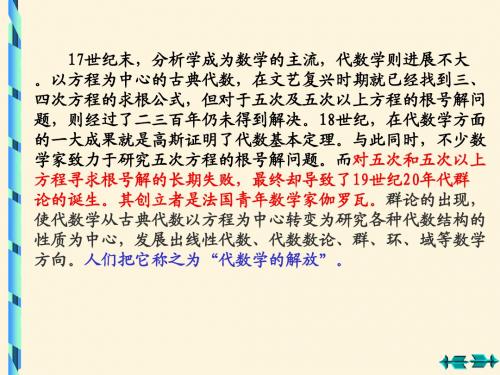 17世纪末，分析学成为数学的主流，代数学则进展不大
。以方程为中心的古典代数，在文艺复兴时期就已经找到三、
四次方程的求根公式，但对于五次及五次以上方程的根号解问
题，则经过了二三百年仍未得到解决。18世纪，在代数学方面
的一大成果就是高斯证明了代数基本定理。与此同时，不少数
学家致力于研究五次方程的根号解问题。而对五次和五次以上
方程寻求根号解的长期失败，最终却导致了19世纪20年代群
论的诞生。其创立者是法国青年数学家伽罗瓦。群论的出现，
使代数学从古典代数以方程为中心转变为研究各种代数结构的
性质为中心，发展出线性代数、代数数论、群、环、域等数学
方向。人们把它称之为“代数学的解放”。
上一页
下一页